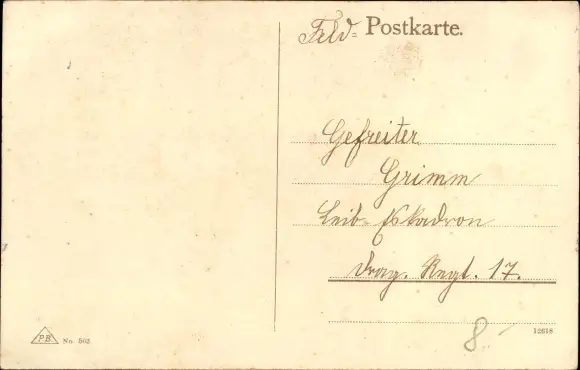 Feld- Postkarte.
Gefreiter
Grimm
Leib-Eskadron
Drag. Regt. 17.
8.-
P.B. No. 502
12618